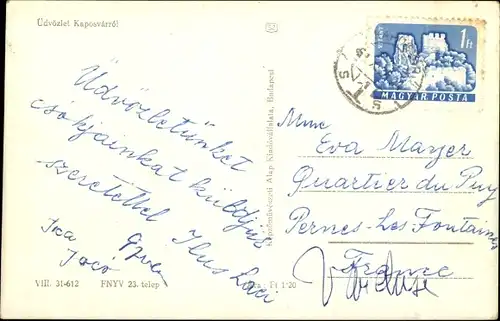 Üdvözlet Kaposvárról
Üdvözletünket
csókjainkat küldjük
szeretettel Ilus Laci
Ica Gyuri
Jocó
VIII. 31-612 FNYV 23. telep
Ára: Ft 1·20
Képzőművészeti Alap Kiadóvállalata, Budapest
1 Ft
MAGYAR POSTA
Mme
Eva Mayer
Quartier du Puy
Pernes-Les Fontaines
Vaucluse
France